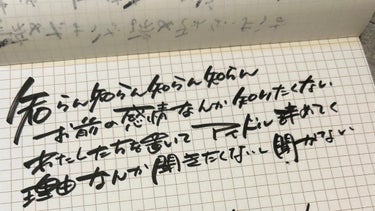 知らん知らん知らん知らん
お前の感情なんか知りたくない
あたしたちを置いてアイドル辞めてく
理由なんか聞きたくないし聞かない